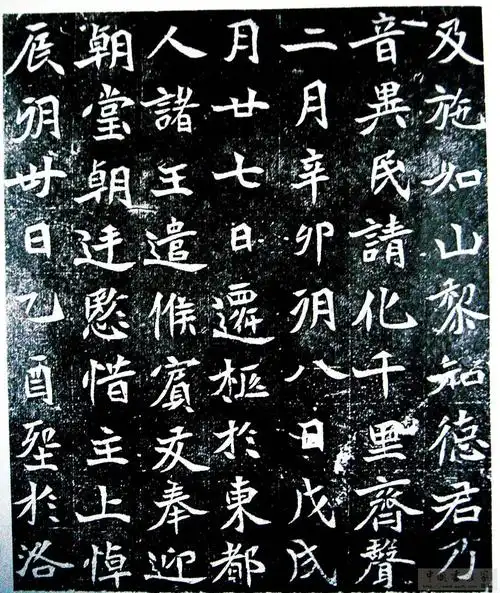 及施如山黎知德君乃
音異民請化千里齊聲
二月辛卯朔八日戊戌
月廿七日遷柩於東都
人諸王遣候賓友奉迎
朝堂朝廷愍惜主上悼
辰朔卅日乙酉於洛